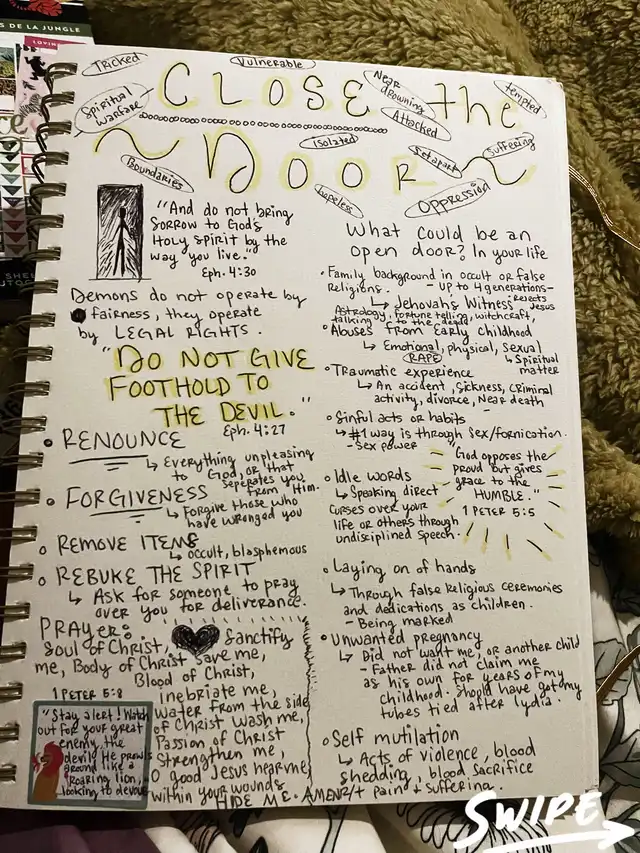 S DE LA JUNGLE
LOVIN
Tricked
Vulnerable
Near drowning
tempted
Spiritual warfare
CLOSE the
Attacked
Isolated
Set apart
Suffering
Boundaries
DOOR
hopeless
Oppression
"And do not bring
sorrow to God's
Holy Spirit by the
way you live."
Eph. 4:30
Demons do not operate by
fairness, they operate
by LEGAL RIGHTS.
"DO NOT GIVE
FOOTHOLD TO
THE DEVIL."
Eph. 4:27
• RENOUNCE
↳ Everything unpleasing
to God, or that
seperates you
from Him.
• FORGIVENESS
↳ Forgive those who
have wronged you
• REMOVE ITEMS
↳ occult, blasphemous
• REBUKE THE SPIRIT
↳ Ask for someone to pray
over you for deliverance.
PRAYER:
Soul of Christ, Sanctify
me, Body of Christ save me,
Blood of Christ,
inebriate me,
Water from the side
of Christ wash me,
Passion of Christ
Strengthen me,
O good Jesus hear me
within your wounds
HIDE ME. AMEN
1 PETER 5:8
"Stay alert! Watch
out for your great
enemy, the
devil. He prowls
around like a
roaring lion,
looking to devour
What could be an
open door? In your life
• Family background in occult or false
Religions. - Up to 4 generations -
↳ Jehovahs Witness : Rejects Jesus
Astrology, fortune telling, witchcraft,
talking to the dead
• Abuses from Early Childhood
↳ Emotional, physical, sexual
RAPE
↳ Spiritual
matter
• Traumatic experience
↳ An accident, sickness, criminal
activity, divorce, Near death
• Sinful acts or habits
↳ #1 way is through Sex/fornication.
- Sex power
"God opposes the
proud but gives
grace to the
HUMBLE."
1 PETER 5:5
• Idle words
↳ Speaking direct
curses over your
life or others through
undisciplined speech.
• Laying on of hands
↳ Through false Religious ceremonies
and dedications as children.
- Being marked
• Unwanted pregnancy
↳ Did not want me, or another child
- Father did not claim me
as his own for years of my
childhood. Should have got my
tubes tied after lydia.
• Self mutilation
↳ Acts of violence, blood
shedding, blood sacrifice
+ pain + suffering.
SWIPE